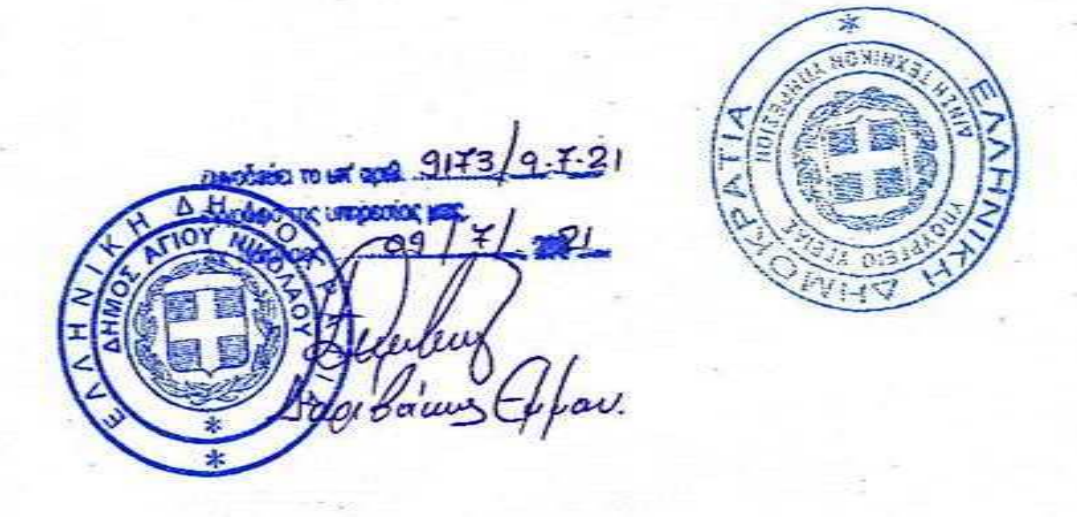 συνοδεύει το υπ' αριθ. 9173/9-7-21
έγγραφο της υπηρεσίας μας.
09/7/2021
Εμμαν.
ΕΛΛΗΝΙΚΗ ΔΗΜΟΚΡΑΤΙΑ
ΔΗΜΟΣ ΑΓΙΟΥ ΝΙΚΟΛΑΟΥ
ΕΛΛΗΝΙΚΗ ΔΗΜΟΚΡΑΤΙΑ
ΥΠΟΥΡΓΕΙΟ ΥΓΕΙΑΣ
ΤΕΧΝΙΚΩΝ ΥΠΗΡΕΣΙΩΝ